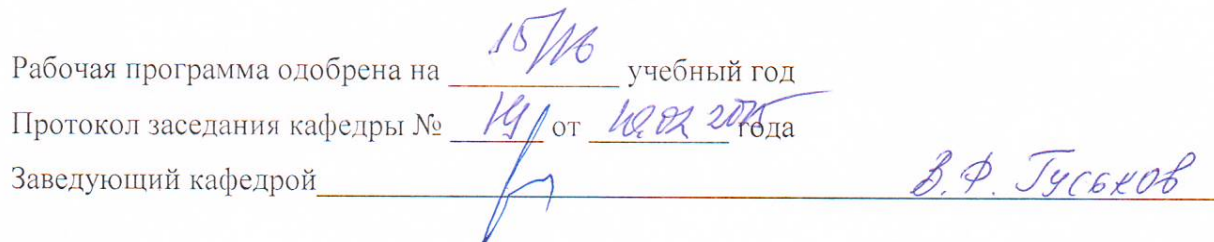 Рабочая программа одобрена на 15/16 учебный год
Протокол заседания кафедры № от 02 2015 года
Заведующий кафедрой В.Ф. Гуськов